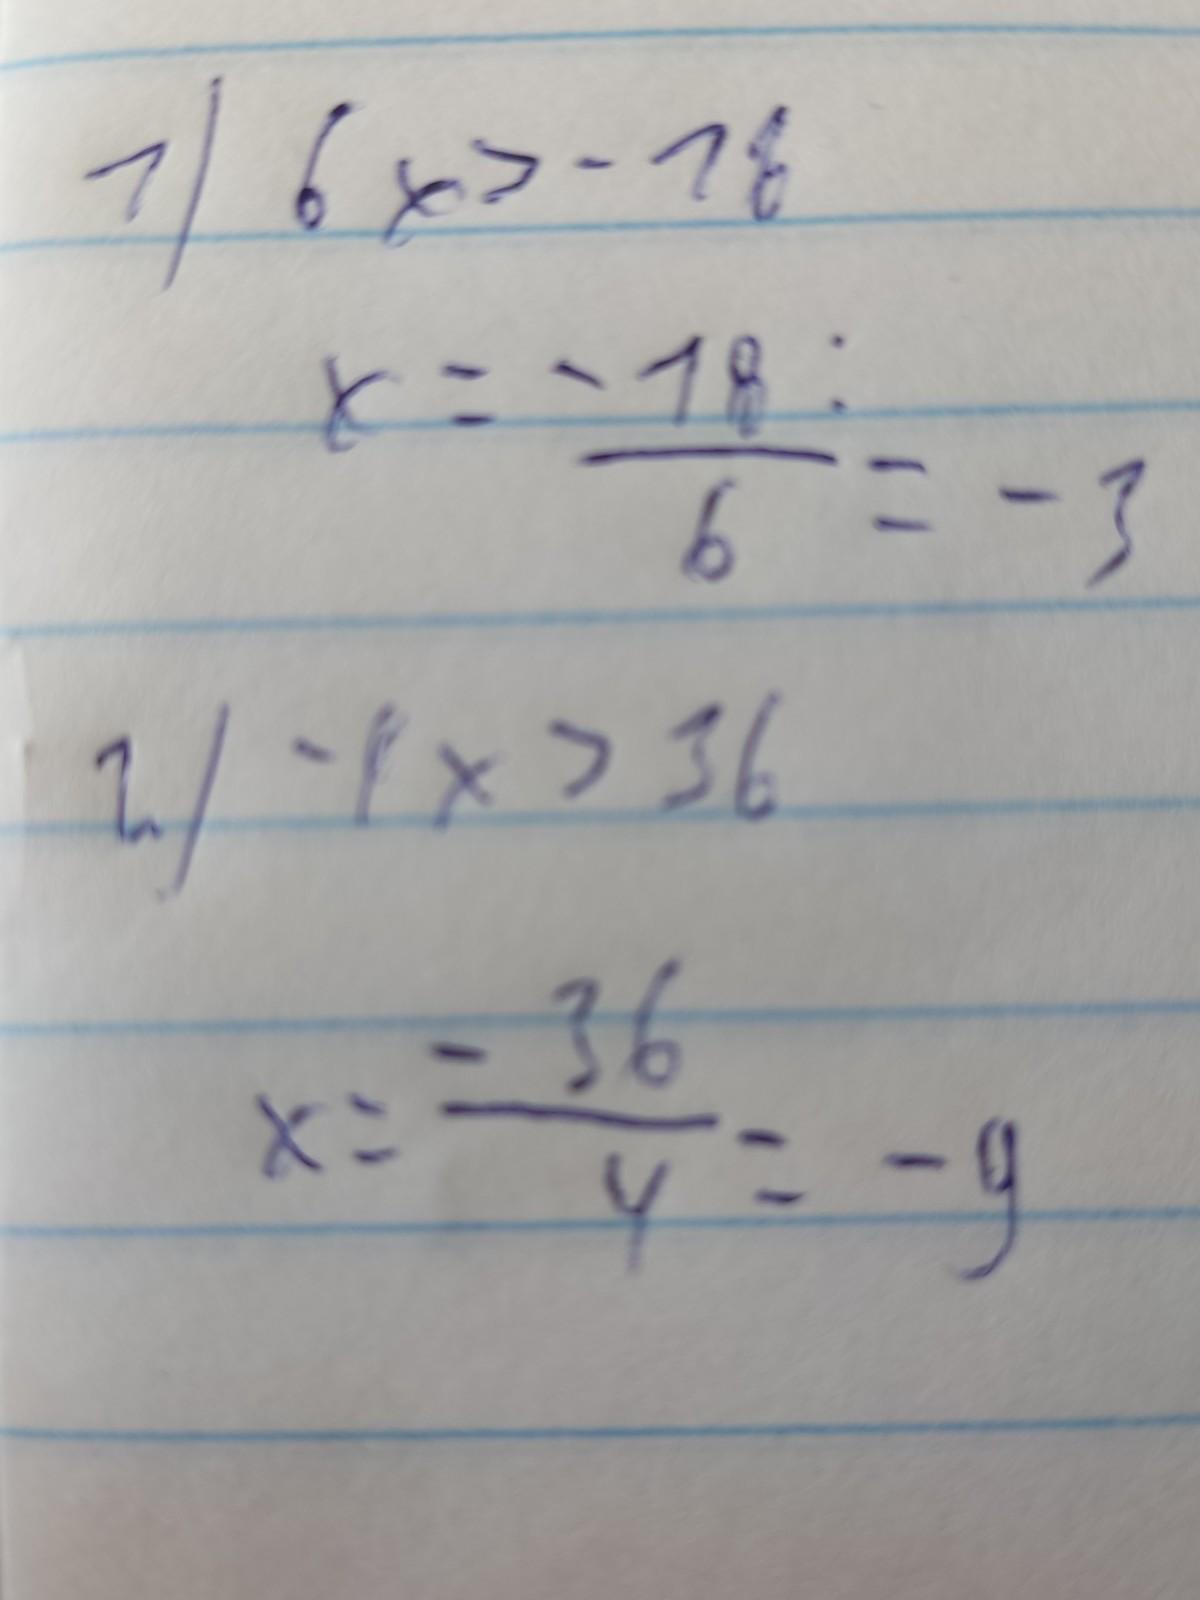 1/ 6x > -18
x = -18 :
6 = -3
2/ -4x > 36
x = -36
4 = -9